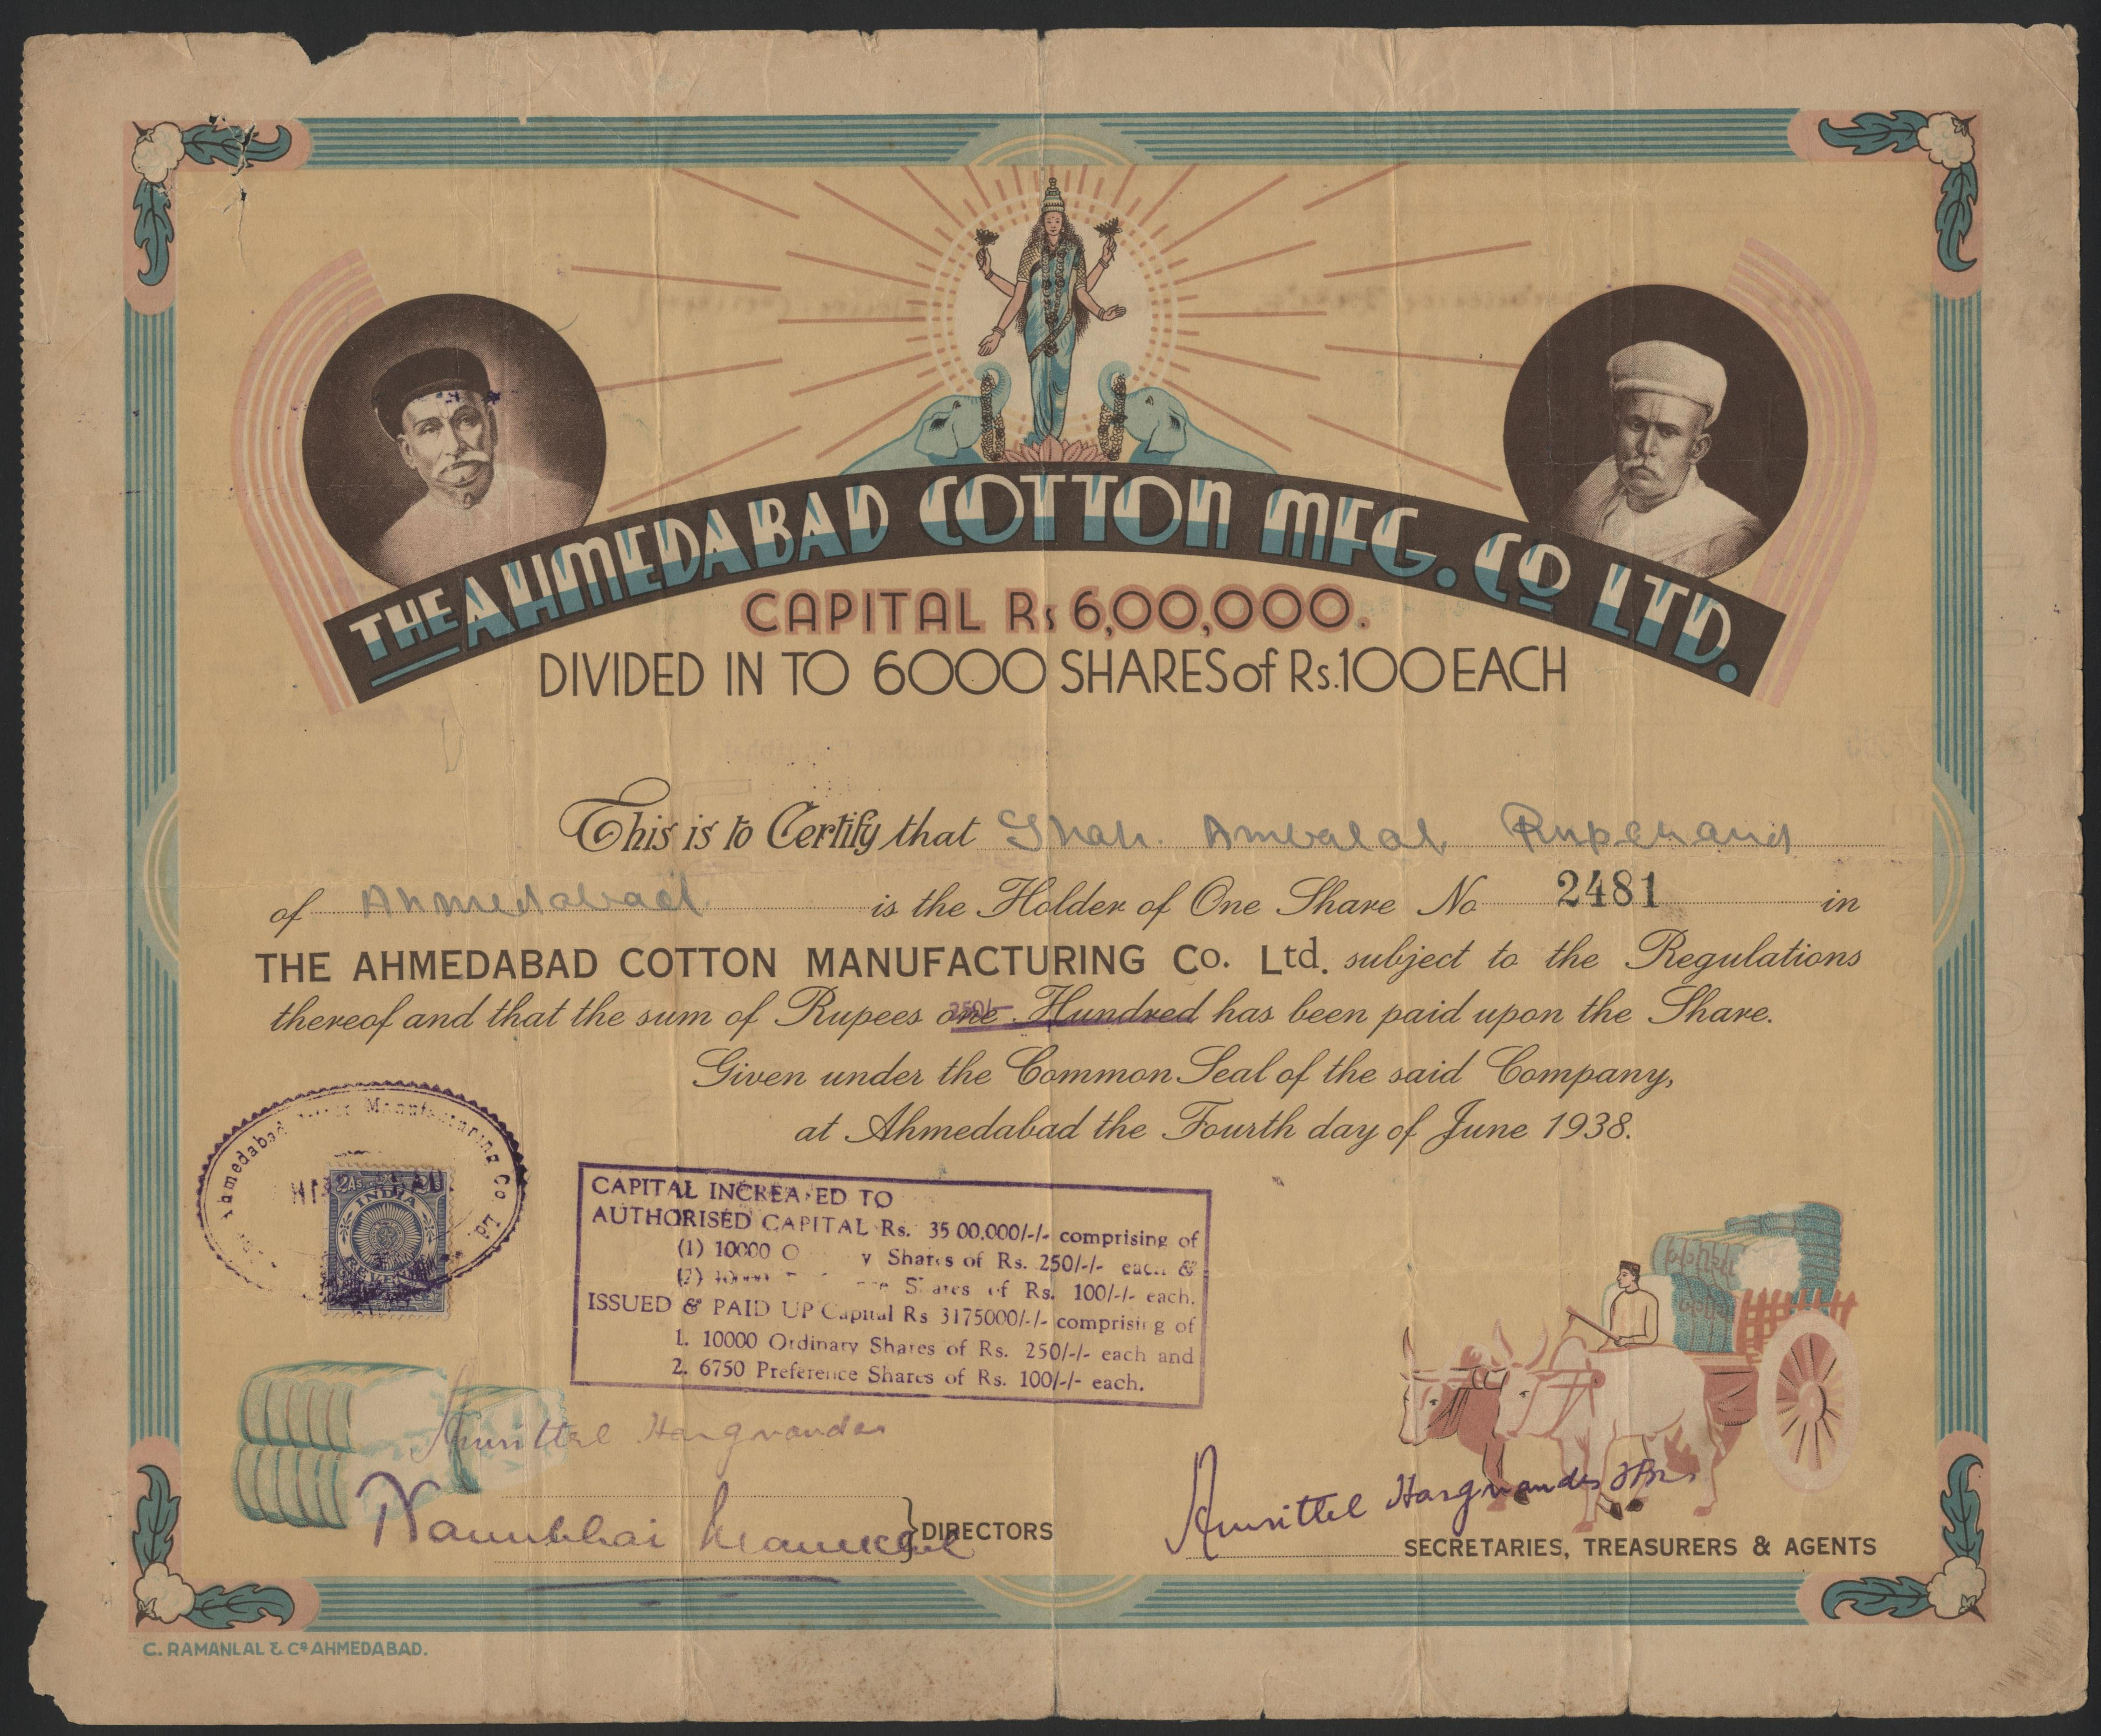 THE AHMEDABAD COTTON MFG. CO LTD.
CAPITAL Rs 6,00,000.
DIVIDED IN TO 6000 SHARES of Rs.100 EACH
This is to Certify that Shah. Ambalal Rupchand
of Ahmedabad is the Holder of One Share No 2481 in
THE AHMEDABAD COTTON MANUFACTURING Co. Ltd. subject to the Regulations
thereof and that the sum of Rupees one Hundred has been paid upon the Share.
250/-
Given under the Common Seal of the said Company,
at Ahmedabad the Fourth day of June 1938.
Ahmedabad Manufacturing Co Ld
2As
INDIA
REVENUE
CAPITAL INCREASED TO
AUTHORISED CAPITAL Rs. 35 00,000/-/- comprising of
(1) 10000 O y Shares of Rs. 250/-/- each &
(2) Shares of Rs. 100/-/- each.
ISSUED & PAID UP Capital Rs 3175000/-/- comprising of
1. 10000 Ordinary Shares of Rs. 250/-/- each and
2. 6750 Preference Shares of Rs. 100/-/- each.
Amrittel Hargovandas
Ramubhai Maneklal
DIRECTORS
Amrittel Hargovandas
SECRETARIES, TREASURERS & AGENTS
C. RAMANLAL & Co AHMEDABAD.